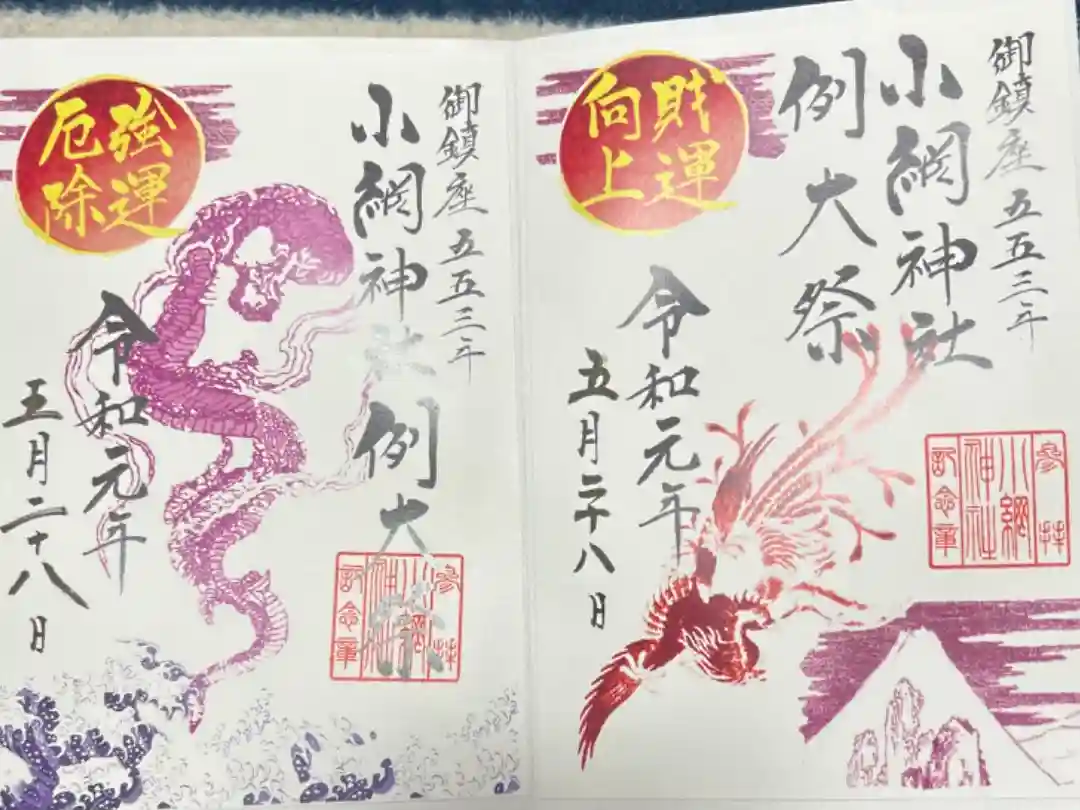 御鎮座五五三年
小網神社
例大祭
財運
向上
令和元年
五月二十八日
参拝
小網
神社
記念章
御鎮座五五三年
小網神社例大祭
強運
厄除
令和元年
五月二十八日
参拝
小網
神社
記念章